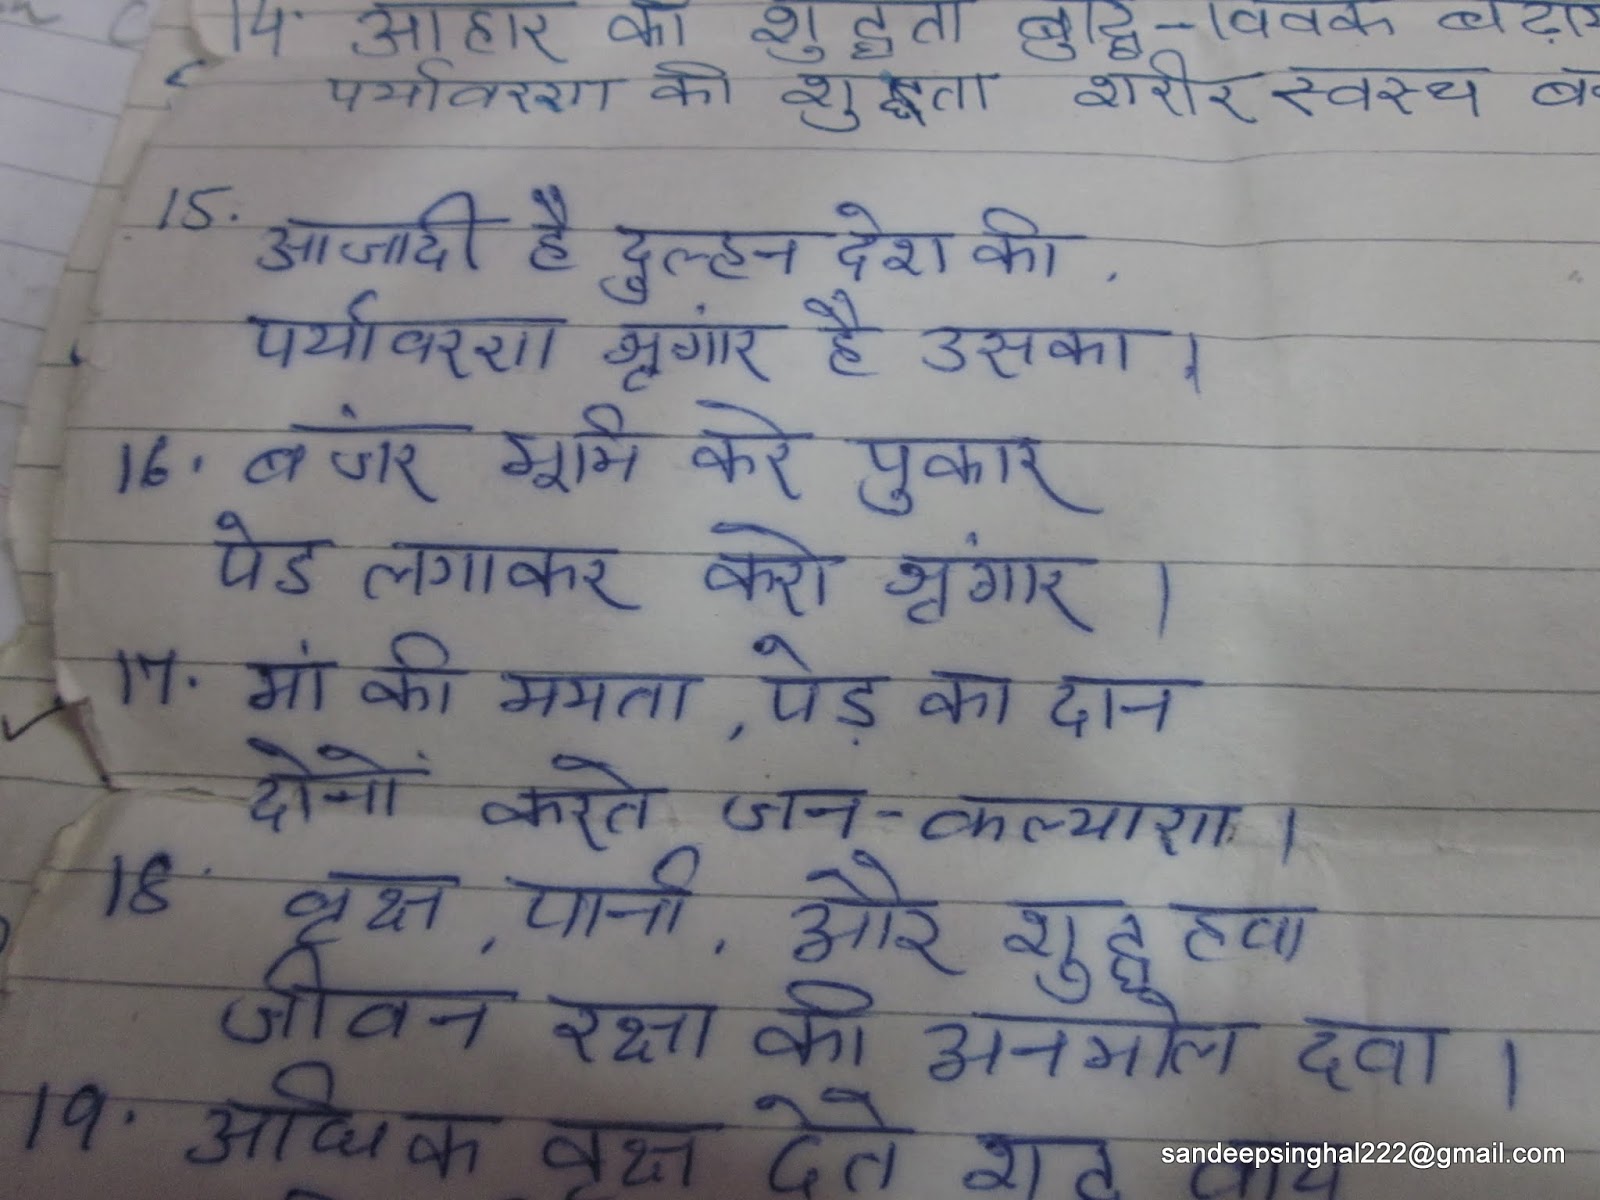 14. आहार की शुद्धता बुद्धि-विवेक
पर्यावरण की शुद्धता शरीर स्वस्थ
15.
आजादी है दुल्हन देश की,
पर्यावरण श्रृगांर है उसका।
16. बजंर भूमि करे पुकार
पेड लगाकर करो श्रृंगार।
17. मां की ममता, पेड़ का दान
दोनों करते जन-कल्याण।
18 वृक्ष, पानी, और शुद्ध हवा
जीवन रक्षा की अनमोल दवा।
19. अधिक वृक्ष देते
sandeepsinghal222@gmail.com